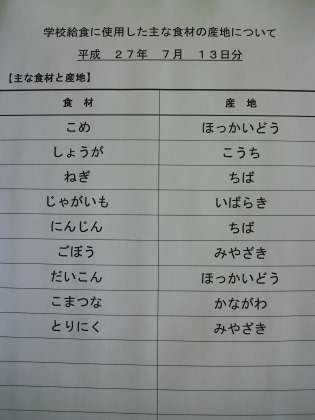 学校給食に使用した主な食材の産地について
平成　２７年　７月　１３日分
【主な食材と産地】
食　材　産　地
こめ　ほっかいどう
しょうが　こうち
ねぎ　ちば
じゃがいも　いばらき
にんじん　ちば
ごぼう　みやざき
だいこん　ほっかいどう
こまつな　かながわ
とりにく　みやざき